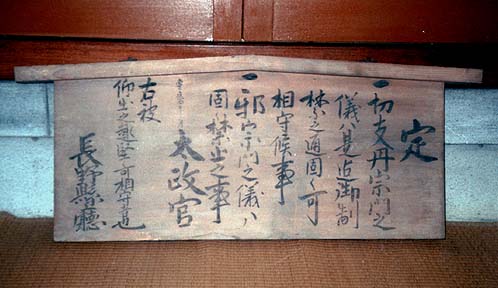 定
一切支丹宗門之
儀ハ是迠御制
禁之通固く可
相守候事
一邪宗門之儀ハ
固禁止之事
太政官
右被
仰出之趣堅可相守者也
長野縣廳